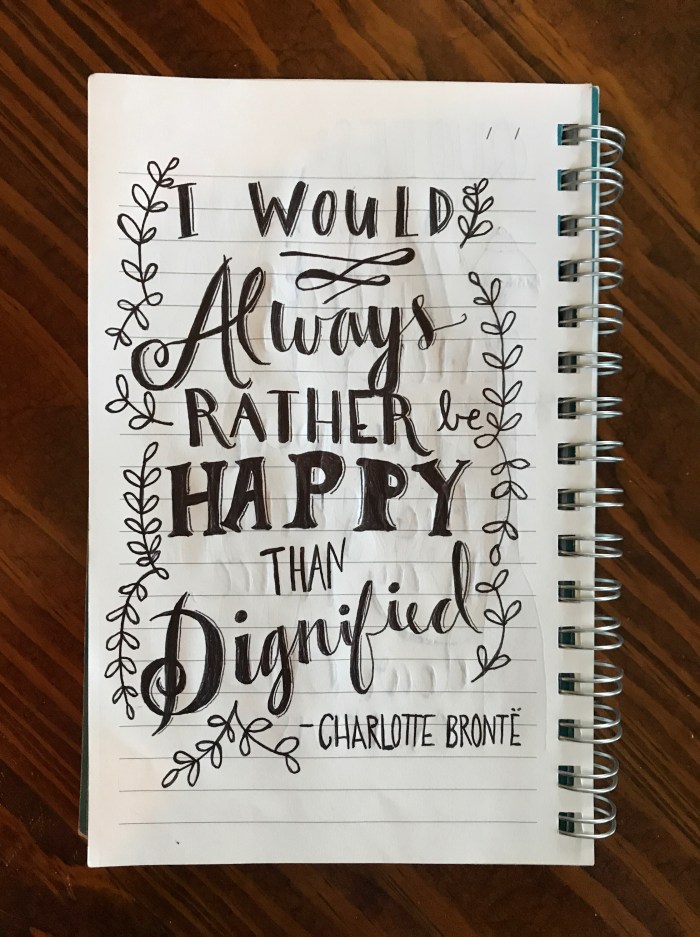 / /
I WOULD
Always
RATHER be
HAPPY
THAN
Dignified
-CHARLOTTE BRONTË